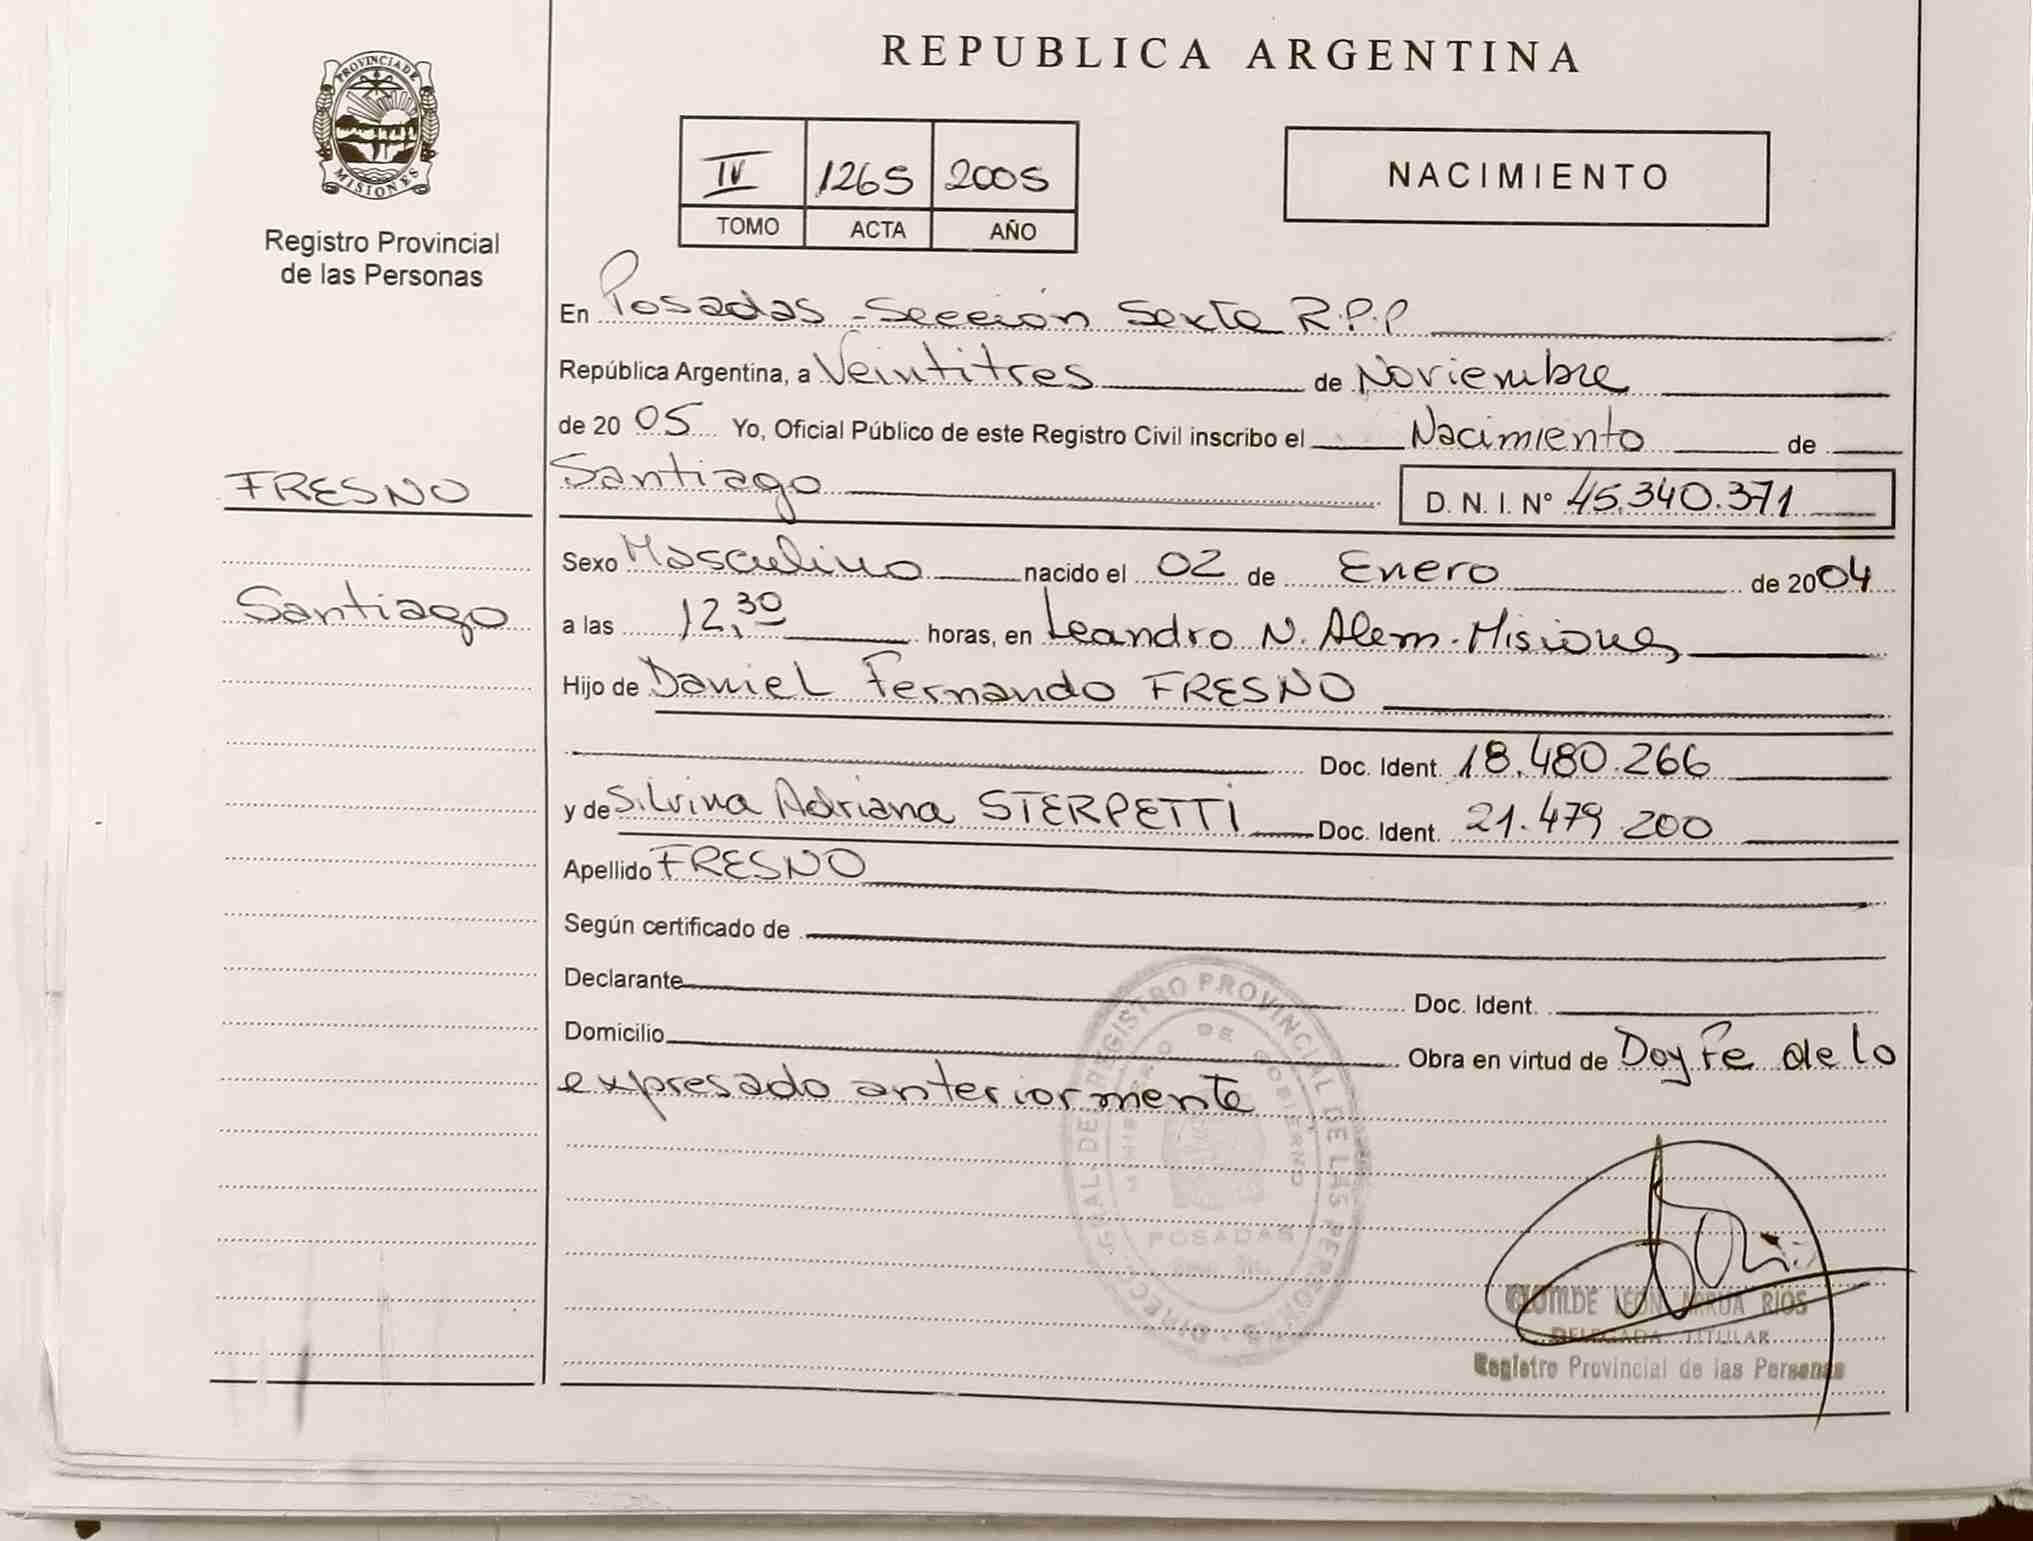 REPUBLICA ARGENTINA
PROVINCIA DE
MISIONES
Registro Provincial
de las Personas
IV 1265 2005
TOMO ACTA AÑO
NACIMIENTO
En Posadas - Sección Sexta R.P.P
República Argentina, a Veintitres de Noviembre
de 2005 Yo, Oficial Público de este Registro Civil inscribo el Nacimiento de
FRESNO
Santiago
Santiago D. N. I. Nº 45.340.371
Sexo Masculino nacido el 02 de Enero de 2004
a las 12,30 horas, en Leandro N. Alem - Misiones
Hijo de Daniel Fernando FRESNO
Doc. Ident. 18.480.266
y de Silvina Adriana STERPETTI Doc. Ident. 21.479.200
Apellido FRESNO
Según certificado de
Declarante Doc. Ident.
Domicilio Obra en virtud de Doy Fe de lo
expresado anteriormente
DIRECC. GRAL. DE REGISTRO PROVINCIAL DE LAS PERSONAS
MINISTERIO DE GOBIERNO
POSADAS
CLOTILDE LEON ARRUA RIOS
DELEGADA TITULAR
Registro Provincial de las Personas